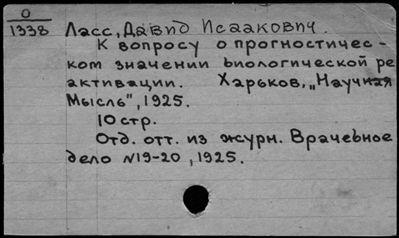 О
1338
Ласс, Давид Исаакович.
К вопросу о прогностичес-
ком значении биологической ре
активации. Харьков, „Научная
Мысль", 1925.
10 стр.
Отд. отт. из журн. Врачебное
дело №19-20, 1925.